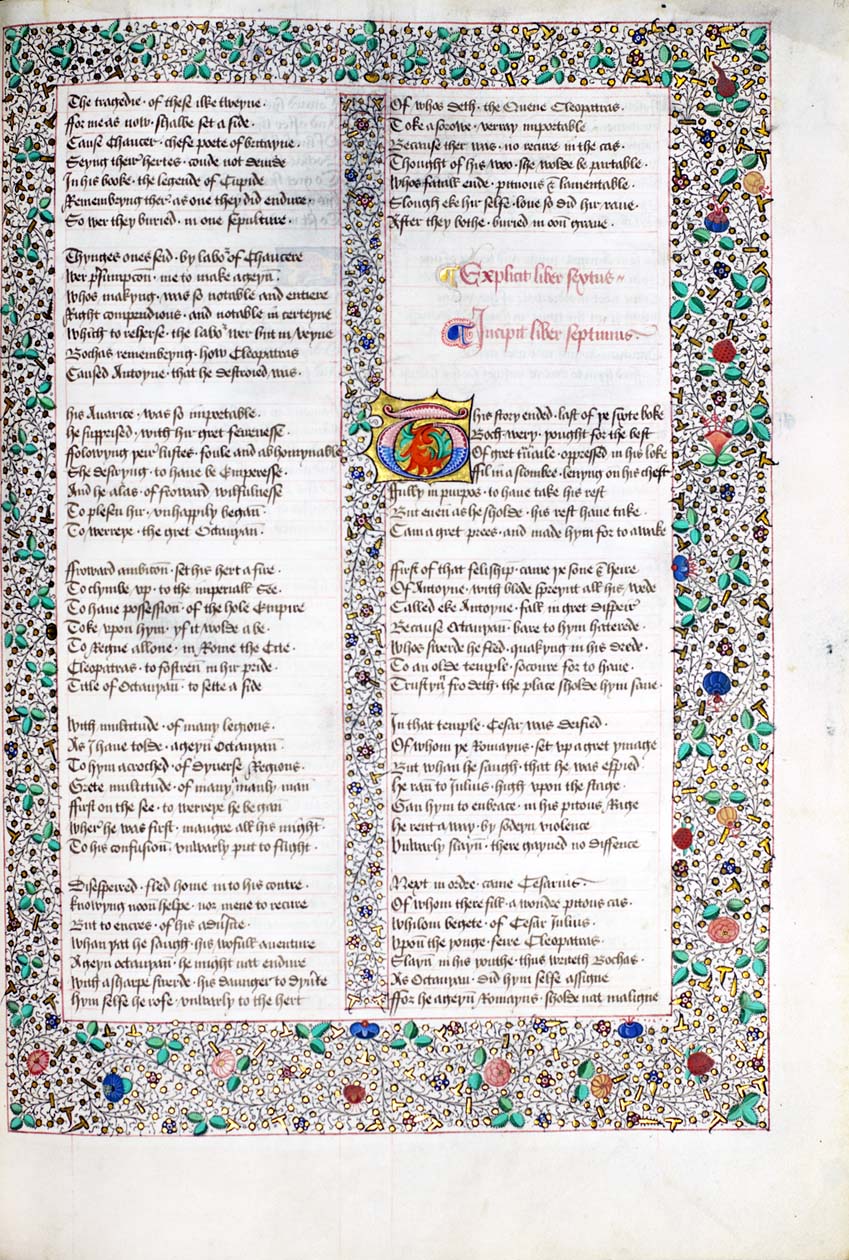 The tragedie · of these ilke tweyne ·
ffor me as now · shalbe set a side ·
Cause Chaucer · chefe poete of bretayne ·
Seyng their hertes · coude not deuide
In his booke · the legende of Cupide
Remembryng ther · as one they did endure ·
So wer they buried · in one sepulture ·
Thynges ones seid · by labor of Chaucere
wer presumpcon · me to make ageyn ·
Whos makyng · was so notable and entiere
Right compendious · and notable in certeyne
Which to reherse · the labor wer but in veyne
Bochas remembryng · how Cleopatras
Caused Antoyne · that he destroied was ·
his Auarice · was so importable ·
he supprised · with hir gret feirenesse
ffolowyng þeir lustes · foule and abhomynable
She desiryng · to haue be Emperesse ·
And he alas · of froward wilfulnesse
To plesen hir · vnhappily began
To werreye · the gret Octauyan ·
ffroward ambicon · set his hert a fire ·
To clymbe vp · to the imperiall See ·
To haue possession · of the hole Empire
Toke vpon hym · yf it wolde a be ·
To Regne allone · in Rome the Cite ·
Cleopatras · to fostren in hir pride ·
Tale of Octauyan · to sette a side
With multitude · of many legions ·
As I haue tolde · ageyn Octauyan ·
To hym acroched · of dyuerse Regions ·
Grete multitude · of many manly man
ffirst on the see · to werreye he began
Wher he was first · maugre all his myght ·
To his confusion · vnwarly put to flight ·
Disespeired · fled home in to his contre ·
knowyng noon helpe · nor mene to recure
But to encres · of his aduersite ·
Whan þat he saugh · his wofull aventure
Ageyn octauyan · he might nat endure
With a sharpe swerde · his daunger to dyuerte
hym self he rofe · vnwarly to the hert
Of whos deth · the Quene Cleopatras ·
Toke a sorowe · verray importable
Because ther was · no recure in the cas ·
Thought of his woo · she wolde be partable ·
Whos fatall ende · pituous & lamentable ·
Slough eke hir selfe · loue so did hir raue ·
After they bothe · buried in oon graue ·
Explicit liber sextus
Incipit liber septimus
This story ended · last of þe sixte boke
Boch wery · þought for the best
Of gret trauaile · oppressed in his loke
ffil in a slombre · lenyng on his chest
ffully in purpos · to haue take his rest
But euen as he sholde · his rest haue take ·
Cam a gret prees · and made hym for to awake
ffirst of that feliship · came þe sone & heire
Of Antoyne · with blode spreynt all his wede
Called eke Antoyne · fall in gret dispeir
Because Octauyan · bare to hym haterede ·
Whos swerde he fled · quakyng in his drede ·
To an olde temple · socoure for to haue ·
Trustyn fro deth · the place sholde hym saue ·
In that temple · Cesar was deified ·
Of whom þe Romayns · set vp a gret ymage
But whan he saugh · that he was espied
he ran to Iulius · high vpon the stage ·
Gan hym to enbrace · in his pitous Rage
he rent a way · by sodeyn violence
Vnwarly slayn · there gayned no diffence
Next in ordre · came Cesarius
Of whom there fill · a wondre pitous cas ·
Whilom begete · of Cesar Iulius ·
Vpon the yonge · feire Cleopatras ·
Slayn in his youthe · thus writeth Bochas ·
As Octauyan · did hym selfe assigne
ffor he ageyn Romayns · sholde nat maligne